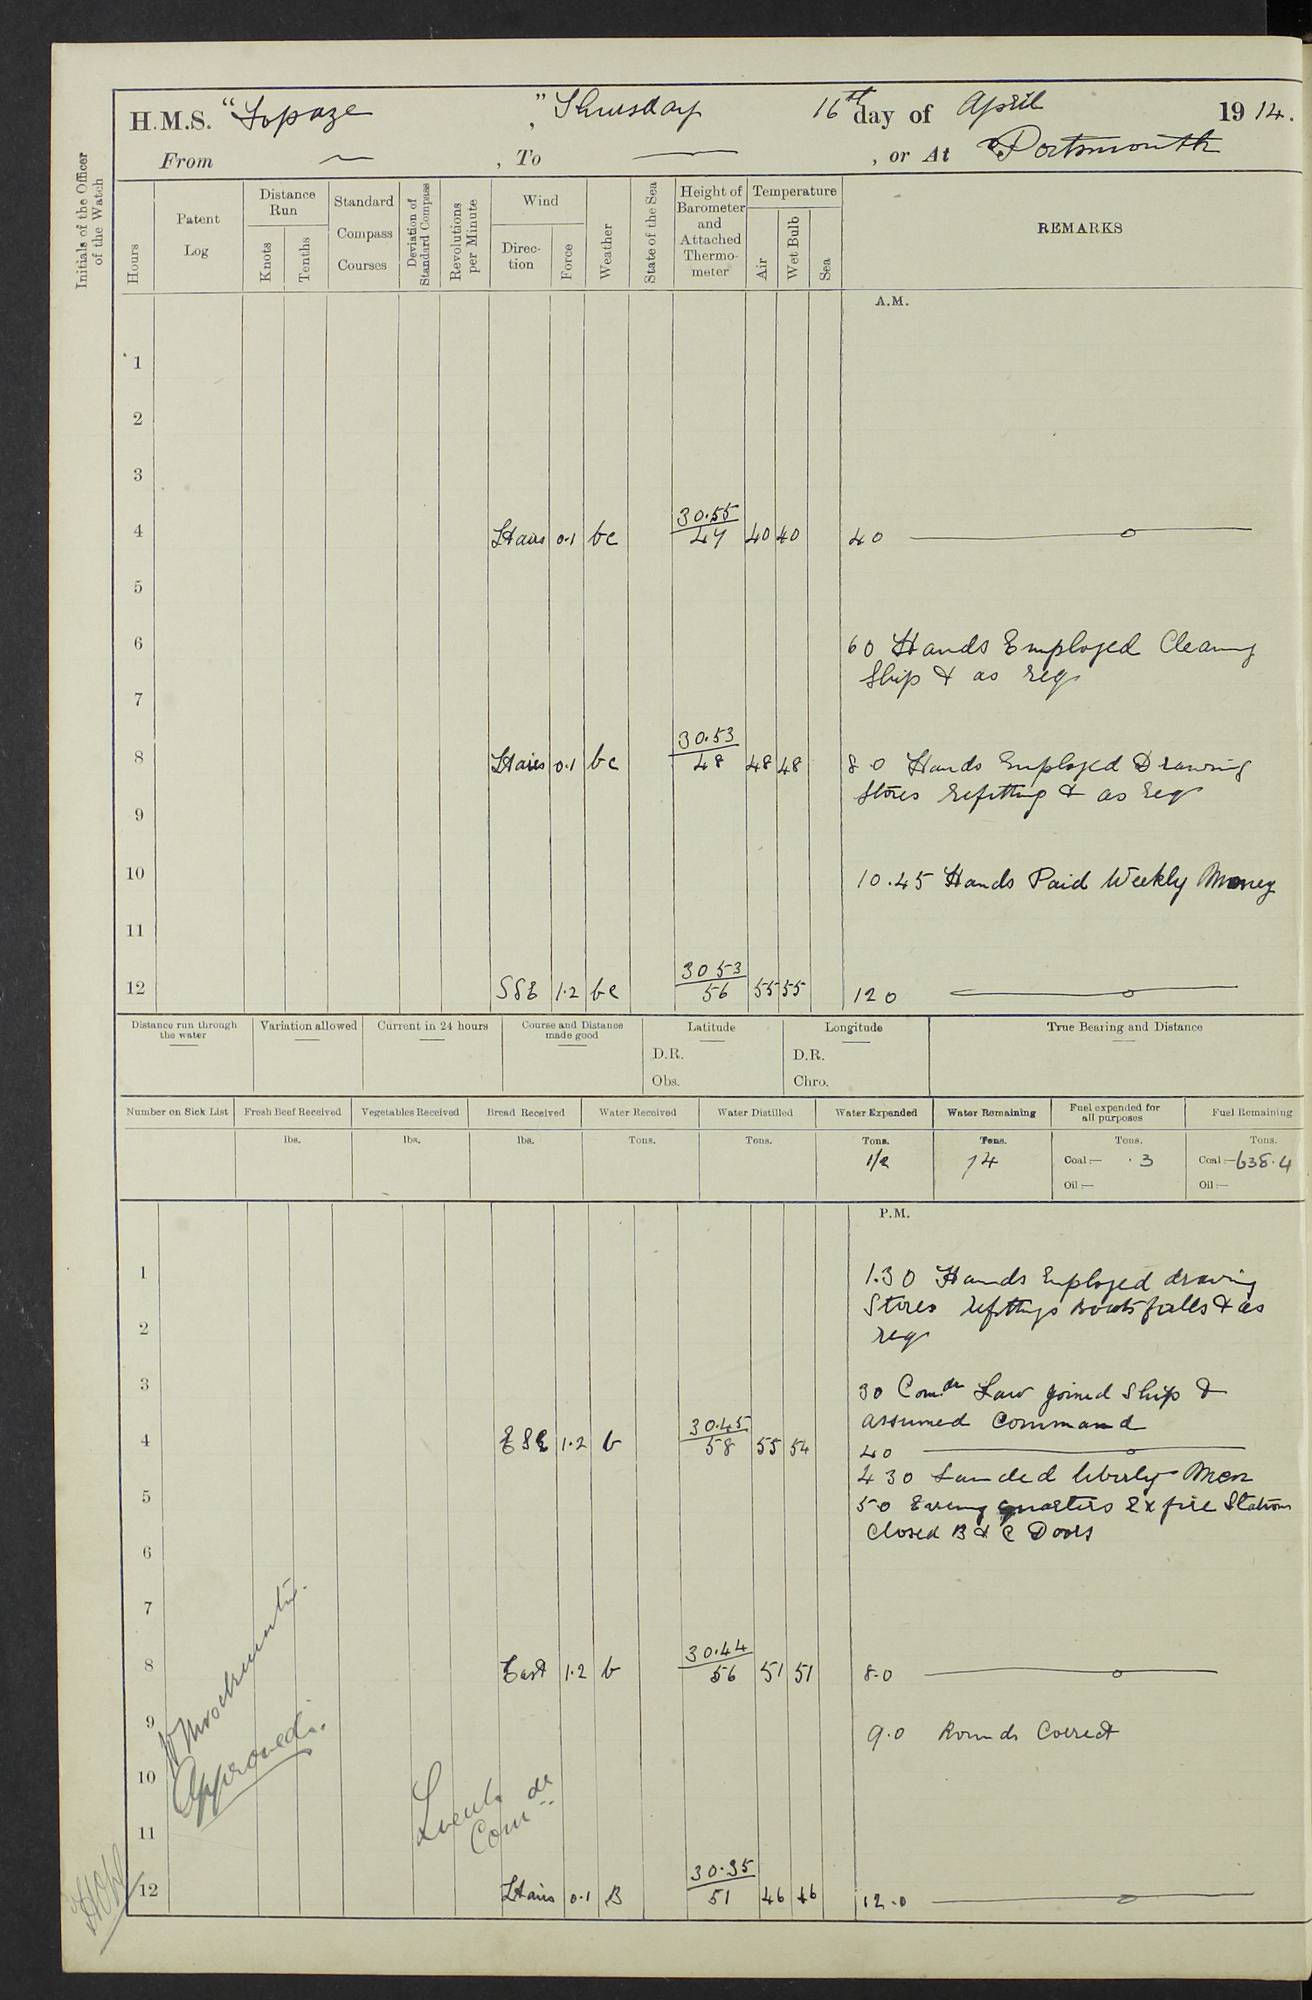 H.M.S. "Topaze", Thursday 16th day of April 1914.
From ~ , To — , or At Portsmouth
Initials of the Officer of the Watch
Hours
Patent Log
Distance Run
Knots
Tenths
Standard Compass Courses
Deviation of Standard Compass
Revolutions per Minute
Wind
Direction
Force
Weather
State of the Sea
Height of Barometer and Attached Thermometer
Temperature
Air
Wet Bulb
Sea
REMARKS
A.M.
1
2
3
4 Ltairs 0.1 bc 30.55 47 40 40 40
5
6 60 Hands Employed Cleaning
Ship & as req
7
8 Ltaires 0.1 bc 30.53 48 48 48 8.0 Hands Employed Drawing
Stores refitting & as req
9
10 10.45 Hands Paid Weekly Money
11
12 SSE 1.2 bc 30 53 56 55 55 120
Distance run through the water
Variation allowed
Current in 24 hours
Course and Distance made good
Latitude
D.R.
Obs.
Longitude
D.R.
Chro.
True Bearing and Distance
Number on Sick List
Fresh Beef Received
lbs.
Vegetables Received
lbs.
Bread Received
lbs.
Water Received
Tons.
Water Distilled
Tons.
Water Expended
Tons.
1/2
Water Remaining
Tons.
74
Fuel expended for all purposes
Tons.
Coal:— .3
Oil:—
Fuel Remaining
Tons.
Coal:— 638.4
Oil:—
P.M.
1 1.30 Hands Employed drawing
Stores refittings Boats falls & as
2 req
3 30 Comdr Law joined Ship &
assumed Command
4 ESE 1.2 b 30.45 58 55 54 40
430 Landed liberty Men
5 50 Evening quarters Ex fire Stations
Closed B & C Doors
6
7
8 East 1.2 b 30.44 56 51 51 8.0
9 9.0 Rounds Correct
10
11
12 Ltairs 0.1 B 30.35 51 46 46 12.0
Approved.
Lieut. Comdr